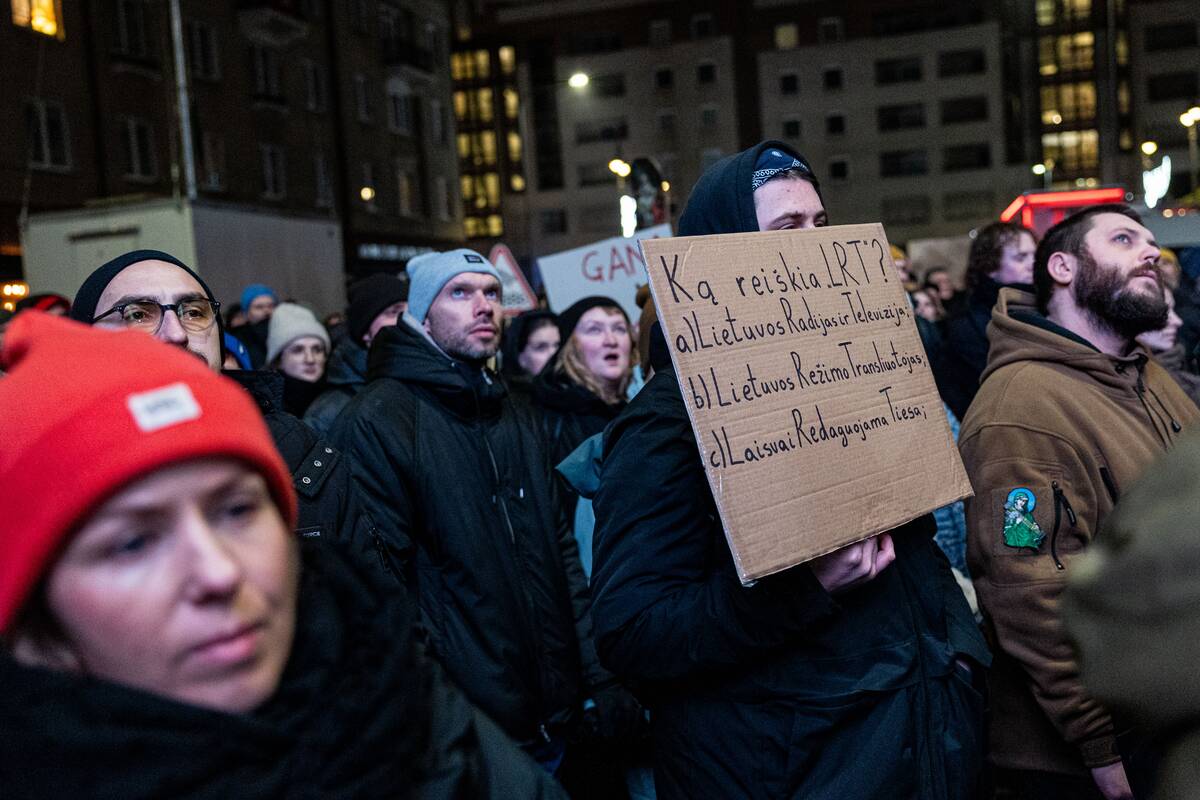 GAN
Ką reiškia „LRT"?
a) Lietuvos Radijas ir Televizija;
b) Lietuvos Režimo Transliuotojas;
c) Laisvai Redaguojama Tiesa;